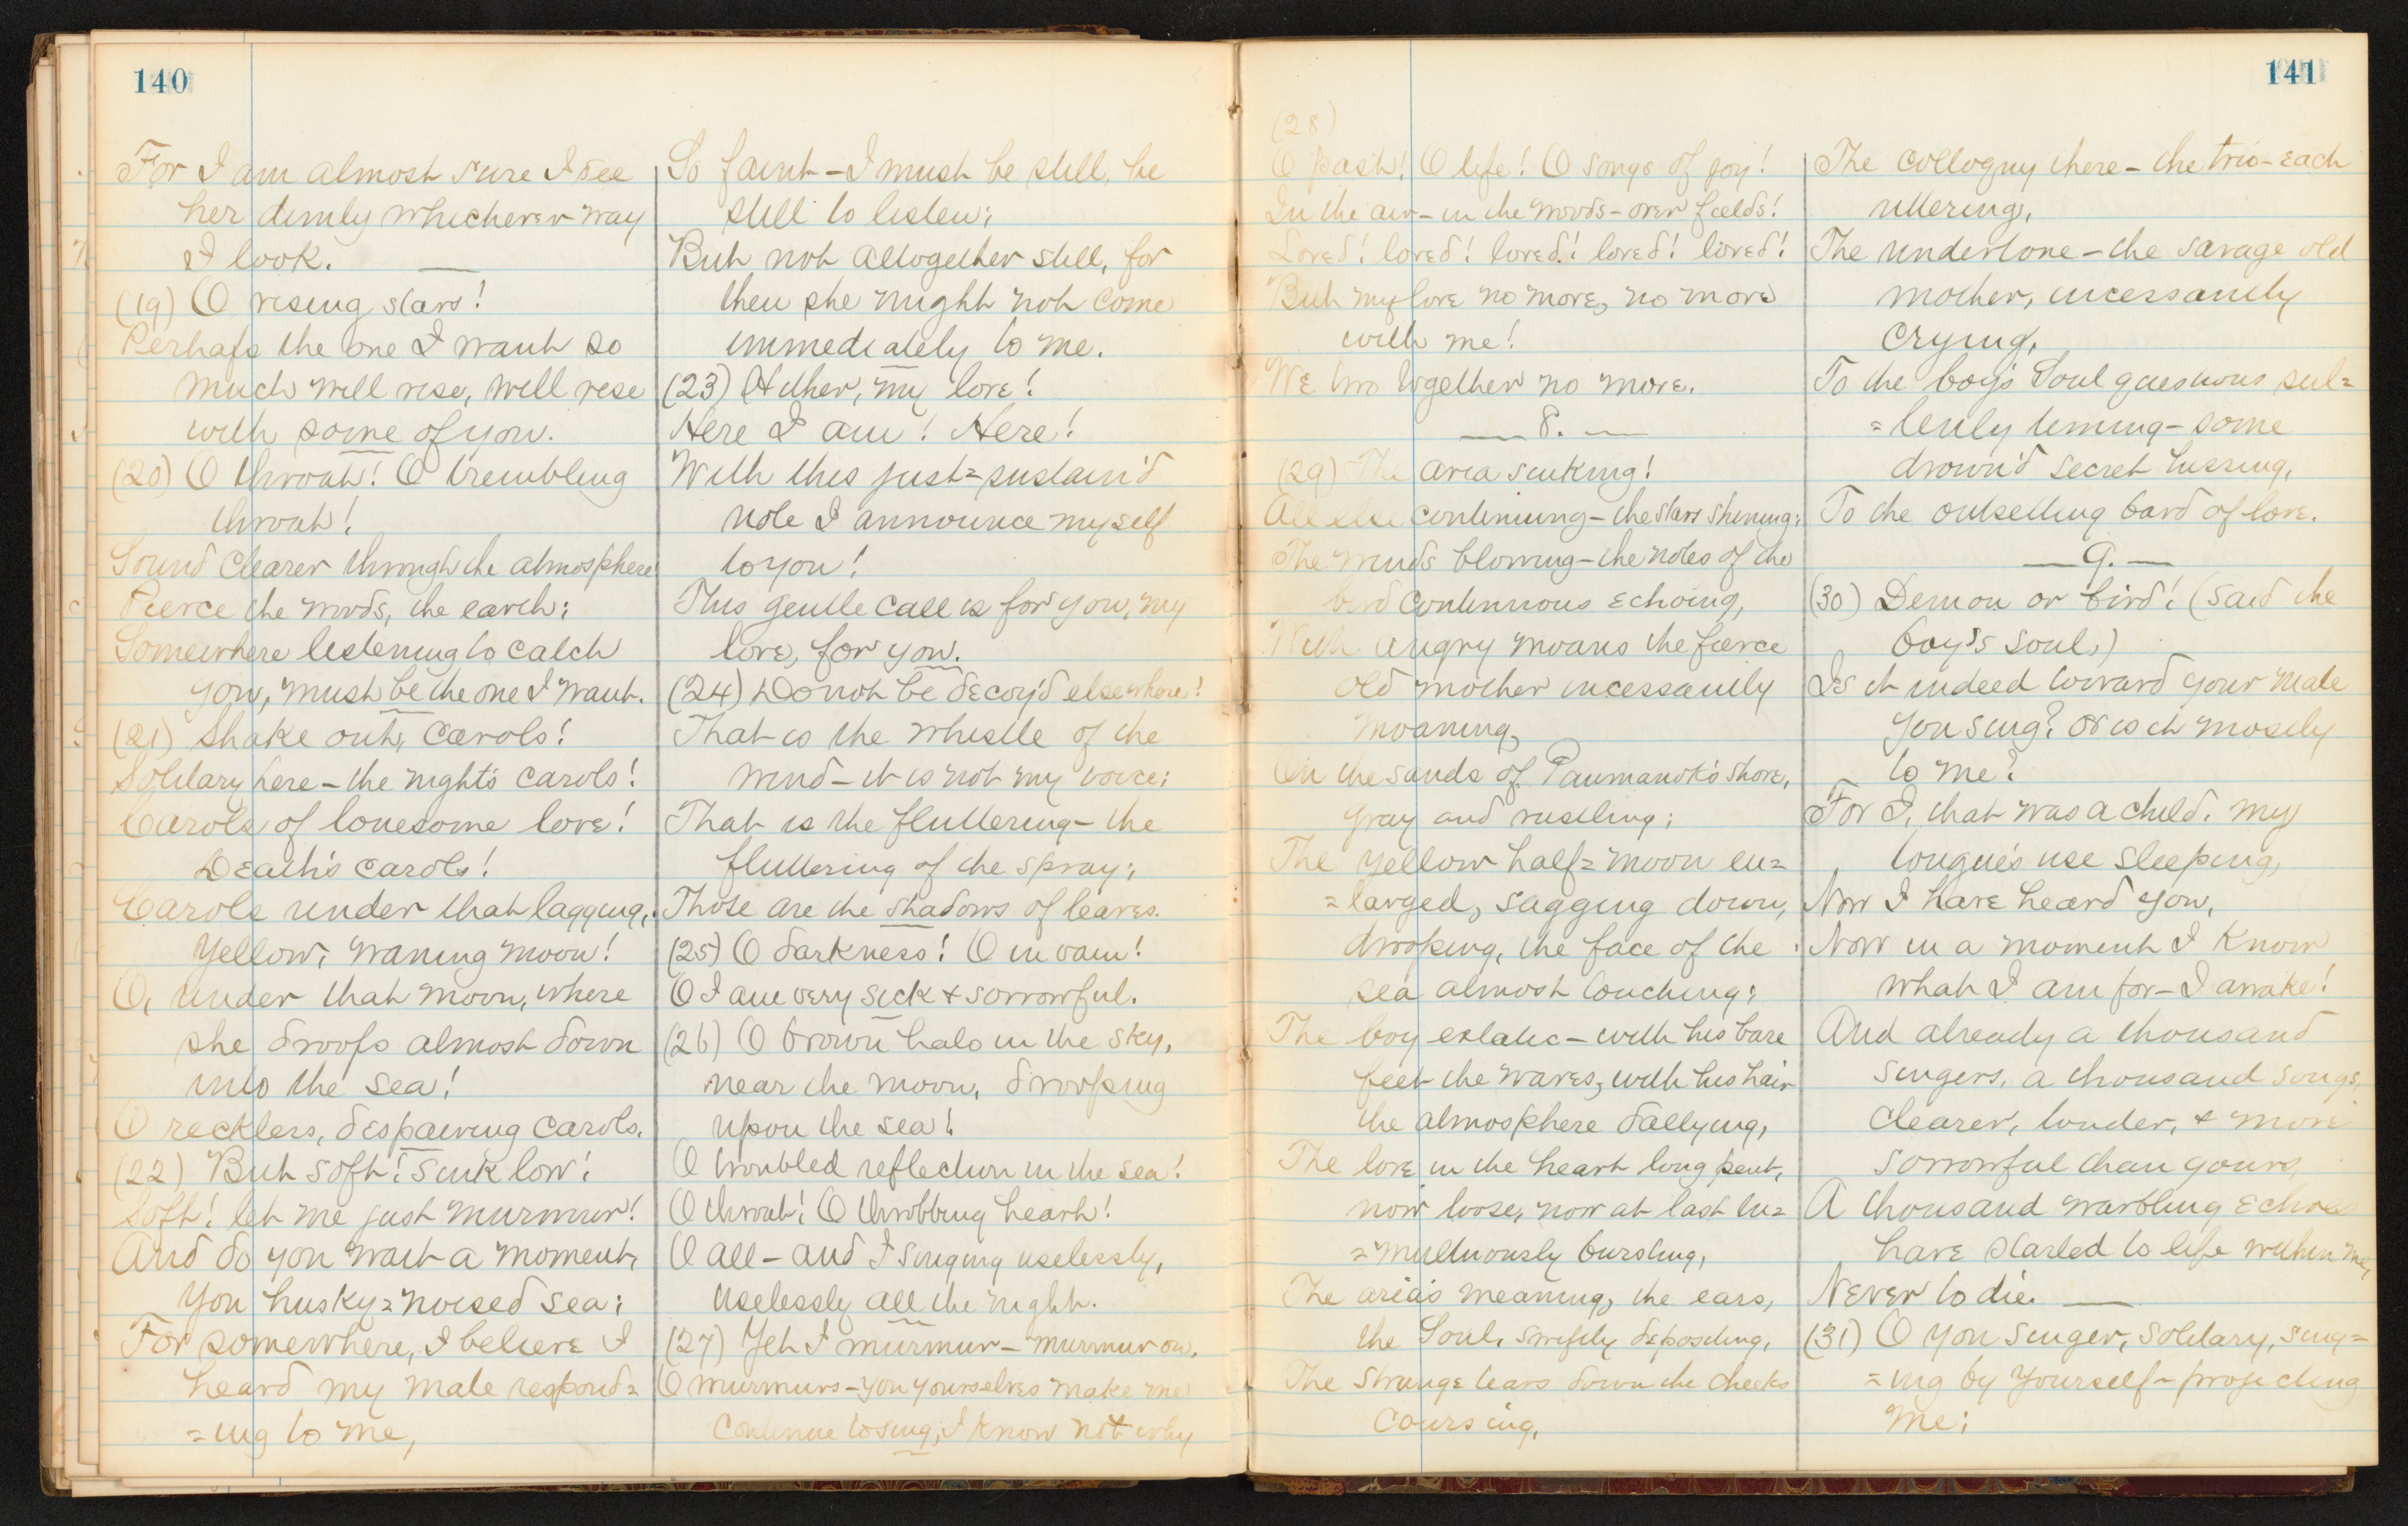 140
For I am almost sure I see
her dimly whichever way
I look. —
(19) O rising stars!
Perhaps the one I want so
much will rise, will rise
with some of you.
(20) O throat! O trembling
throat!
Sound clearer through the atmosphere
Pierce the woods, the earth;
Somewhere listening to catch
you, must be the one I want.
(21) Shake out, carols!
Solitary here – the night's carols!
Carols of lonesome love!
Death's carols!
Carols under that lagging,
yellow, waning moon!
O, under that moon, where
she droops almost down
into the sea!
O reckless, despairing carols.
(22) But soft! sink low!
Soft! let me just murmur!
And do you wait a moment,
you husky=noised sea;
For somewhere, I believe I
heard my mate respond=
=ing to me,
So faint – I must be still, be
still to listen;
But not altogether still, for
then she might not come
immediately to me.
(23) Hither, my love!
Here I am! Here!
With this just=sustain'd
note I announce myself
to you!
This gentle call is for you, my
love, for you.
(24) Do not be decoy'd elsewhere!
That is the whistle of the
wind – it is not my voice;
That is the fluttering – the
fluttering of the spray;
Those are the shadows of leaves.
(25) O darkness! O in vain!
O I am very sick & sorrowful.
(26) O brown halo in the sky,
near the moon, drooping
upon the sea!
O troubled reflection in the sea!
O throat! O throbbing heart!
O all – and I singing uselessly,
uselessly all the night.
(27) Yet I murmur – murmur on,
O murmurs – you yourselves make me
continue to sing, I know not why
141
(28)
O past! O life! O songs of joy!
In the air – in the woods – over fields!
Loved! loved! loved! loved! loved!
But my love no more, no more
with me!
We two together no more.
— 8. —
(29) The aria sinking!
All else continuing – the stars shining;
The winds blowing – the notes of the
bird continuous echoing,
With angry moans the fierce
old mother incessantly
moaning,
On the sands of Paumanok's shore,
gray and rustling;
The yellow half=moon en=
=larged, sagging down,
drooping, the face of the
sea almost touching;
The boy extatic – with his bare
feet the waves, with his hair
the atmosphere dallying,
The love in the heart long pent,
now loose, now at last tu=
=multuously bursting,
The aria's meaning, the ears,
the Soul, swiftly depositing,
The strange tears down the cheeks
coursing,
The colloquy there – the trio – each
uttering,
The undertone – the savage old
mother, incessantly
crying,
To the boy's Soul questions sul=
=lenly timing – some
drown'd secret hissing,
To the outsetting bard of love.
— 9. —
(30) Demon or bird! (said the
boy's soul,)
Is it indeed toward your mate
you sing? or is it mostly
to me?
For I, that was a child, my
tongue's use sleeping,
Now I have heard you,
Now in a moment I know
what I am for – I awake!
And already a thousand
singers, a thousand songs,
clearer, louder, & more
sorrowful than yours,
A thousand warbling echoes
have started to life within me,
Never to die. —
(31) O you singer, solitary, sing=
=ing by yourself – projecting
me;